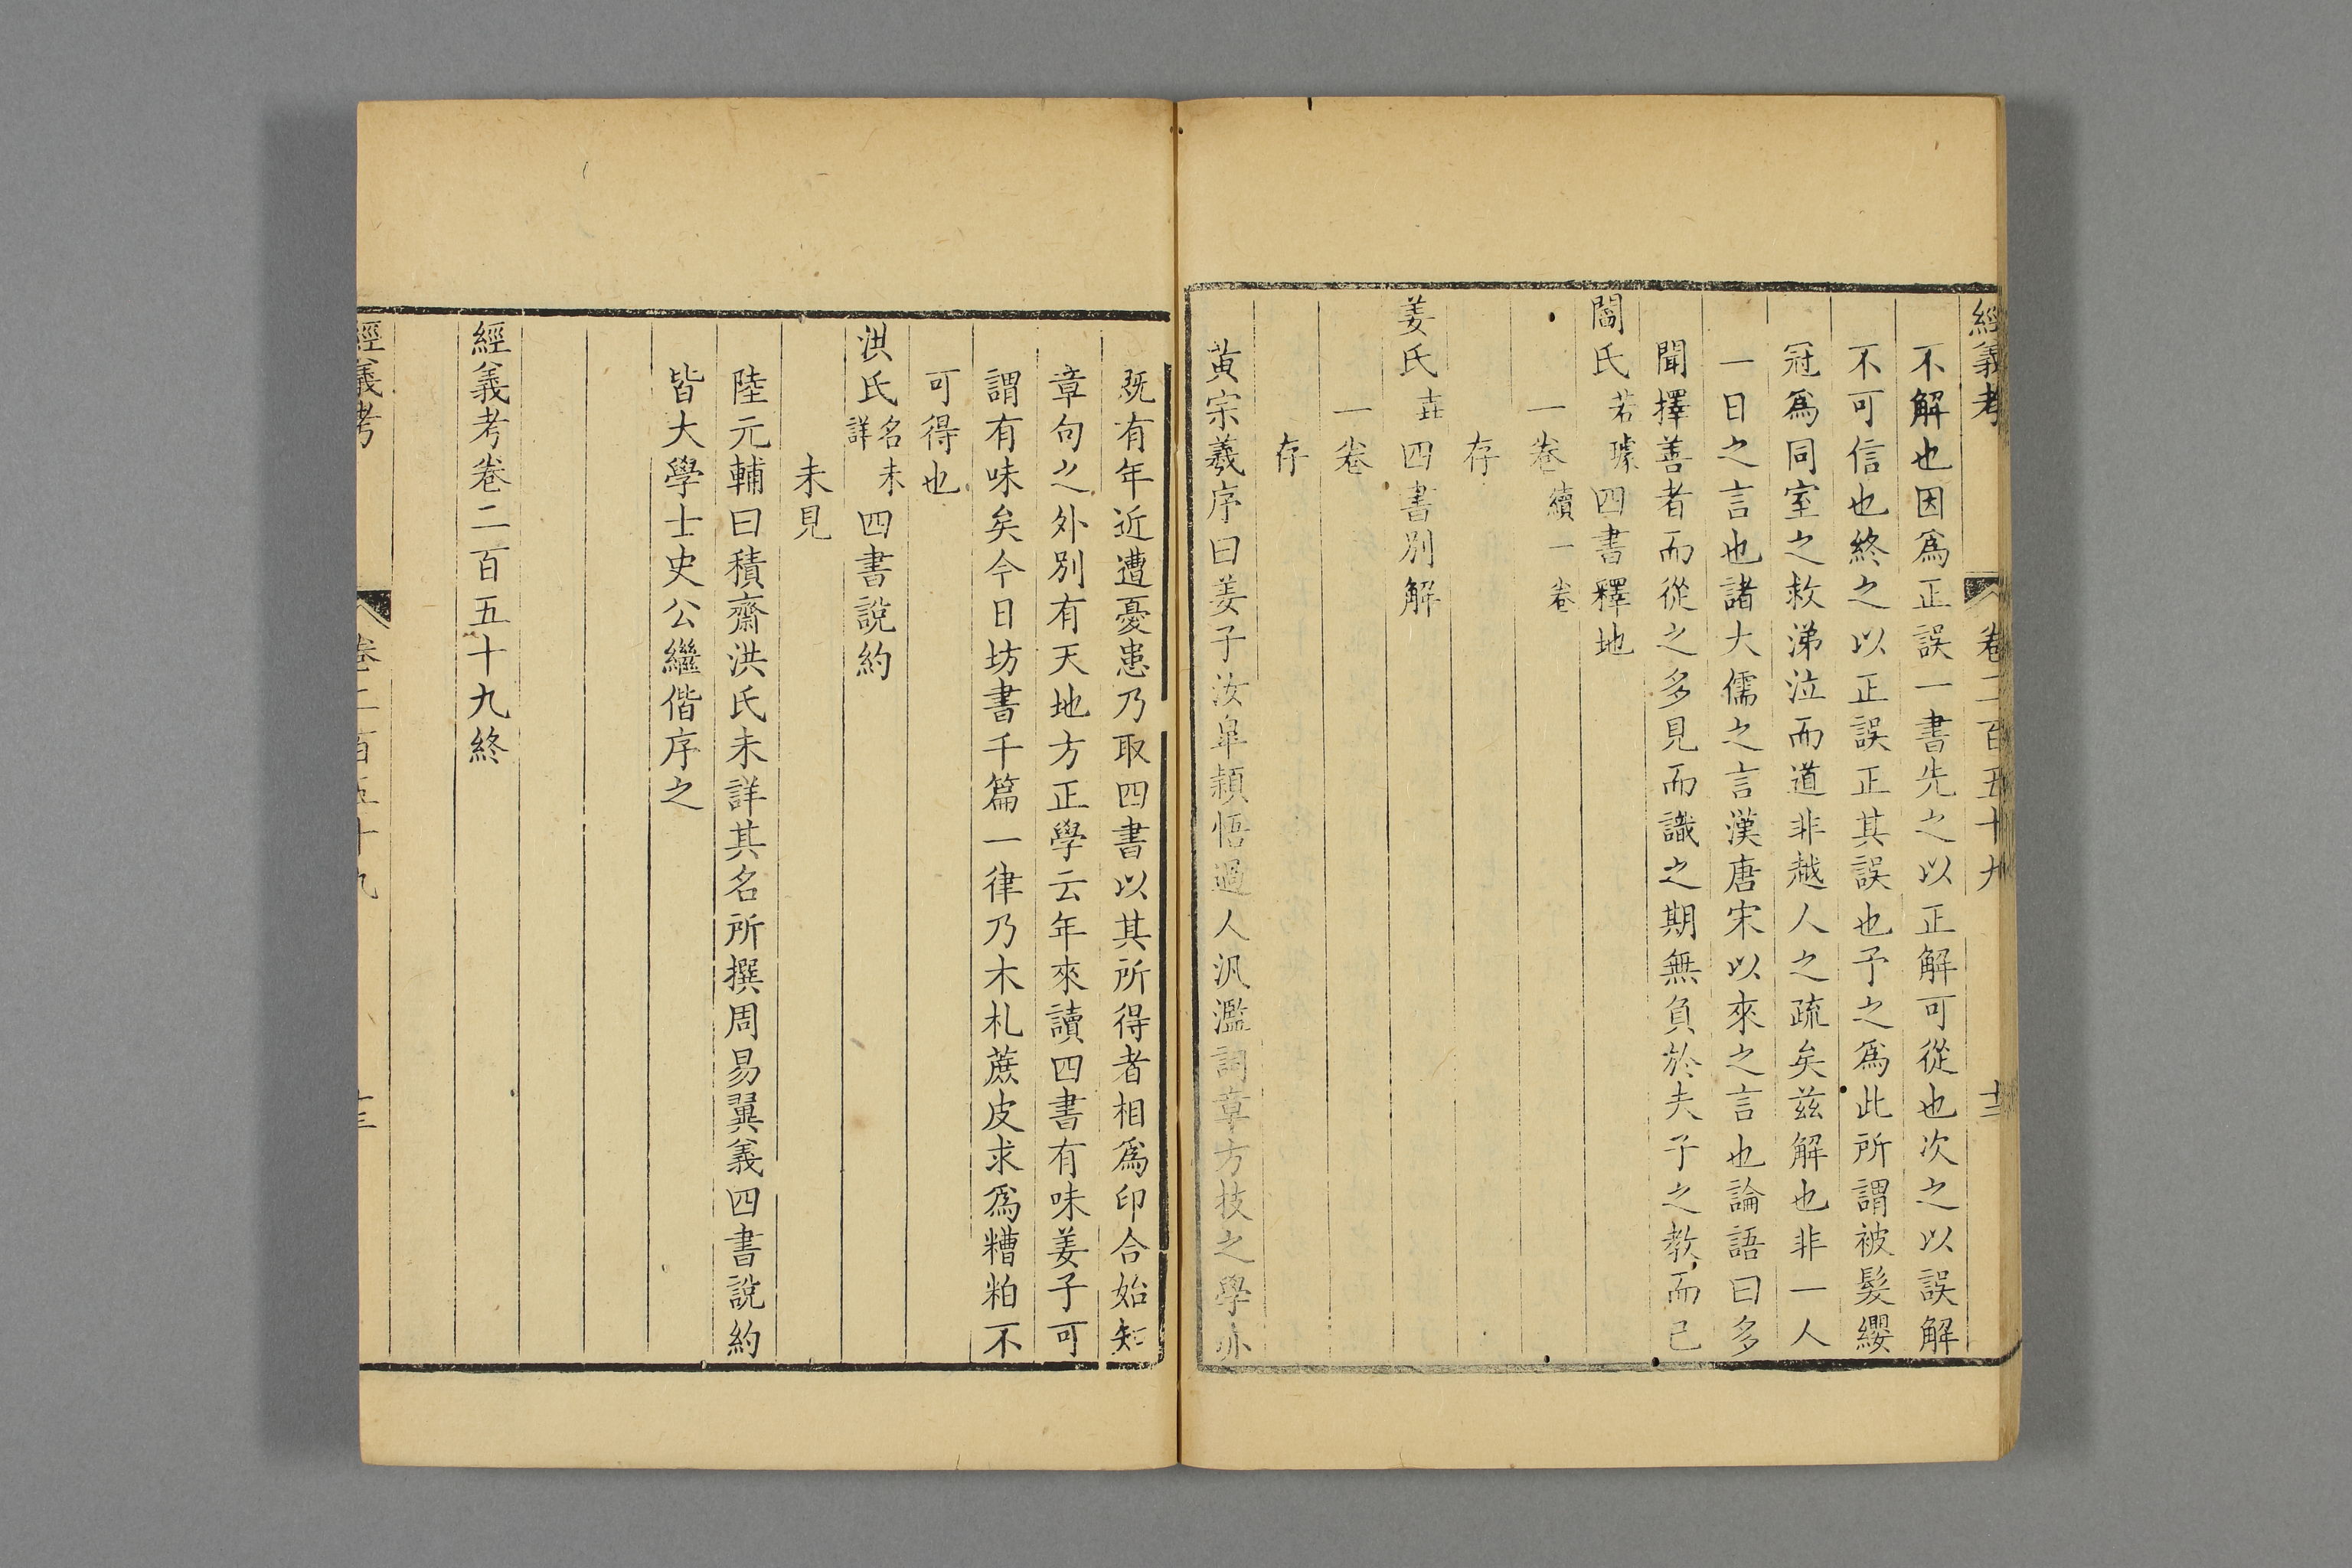 經義考 卷二百五十九 十三
不解也因爲正誤一書先之以正解可從也次之以誤解
不可信也終之以正誤正其誤也予之爲此所謂被髮纓
冠爲同室之救涕泣而道非越人之疏矣兹解也非一人
一日之言也諸大儒之言漢唐宋以來之言也論語曰多
聞擇善者而從之多見而識之期無負於夫子之教而已
閻氏若璩四書釋地
一卷續一卷
存
姜氏垚四書別解
一卷
存
黃宗羲序曰姜子汝皐穎悟過人汎濫詞章方技之學亦
既有年近遭憂患乃取四書以其所得者相爲印合始知
章句之外別有天地方正學云年來讀四書有味姜子可
謂有味矣今日坊書千篇一律乃木札蔗皮求爲糟粕不
可得也
洪氏名未詳四書說約
未見
陸元輔曰積齋洪氏未詳其名所撰周易翼義四書說約
皆大學士史公繼偕序之
經義考卷二百五十九終
經義考 卷二百五十九